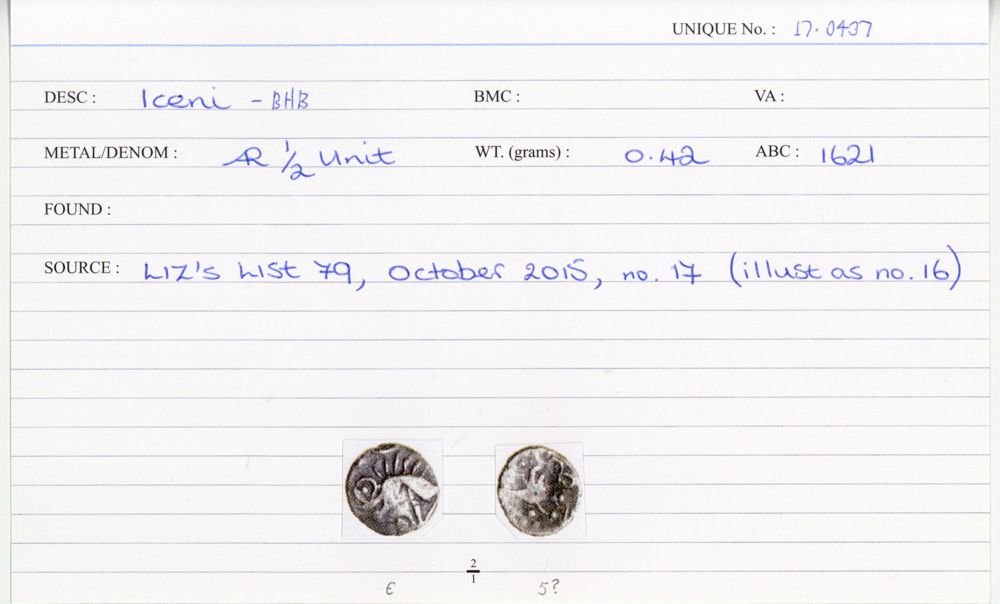 UNIQUE No. : 17.0437
DESC : Iceni - BHB BMC : VA :
METAL/DENOM : AR 1/2 Unit WT. (grams) : 0.42 ABC : 1621
FOUND :
SOURCE : LIZ's LISt 79, October 2015, no. 17 (illust as no. 16)
2/1
€ 5?